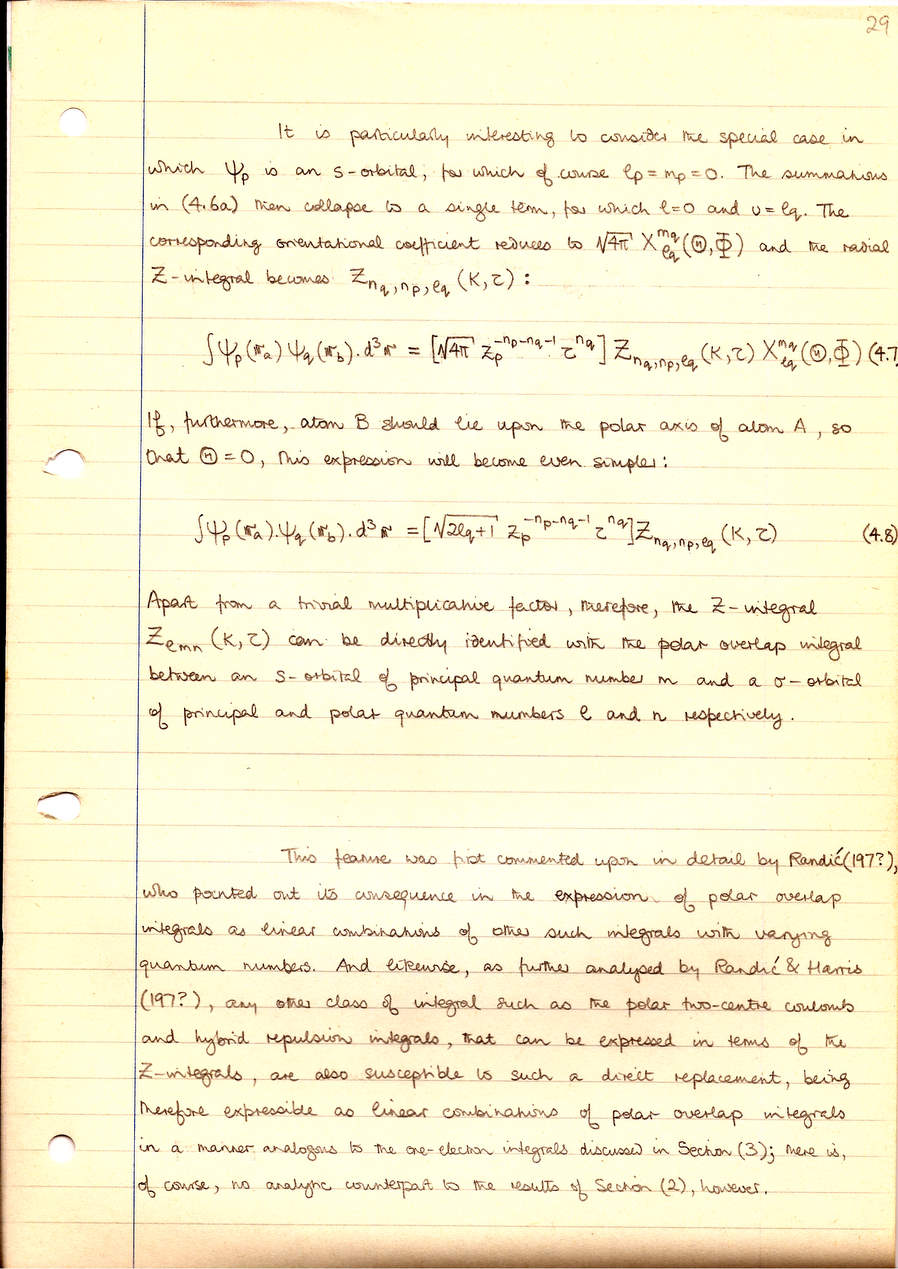 29
It is particularly interesting to consider the special case in
which ψp is an s-orbital, for which of course ℓp = mp = 0. The summations
in (4.6a) then collapse to a single term, for which ℓ=0 and υ = ℓq. The
corresponding orientational coefficient reduces to √4π X^mq_ℓq(Θ,Φ) and the radial
Z-integral becomes Z_nq,np,ℓq (K,τ) :
∫ψp(𝐫a) ψq(𝐫b). d³𝐫 = [√4π zp^-np-nq-1 τ^nq] Z_nq,np,ℓq (K,τ) X^mq_ℓq (Θ,Φ) (4.7
If, furthermore, atom B should lie upon the polar axis of atom A, so
that Θ = 0, this expression will become even simpler :
∫ψp(𝐫a).ψq(𝐫b). d³𝐫 = [√2ℓq+1 zp^-np-nq-1 τ^nq] Z_nq,np,ℓq (K,τ) (4.8)
Apart from a trivial multiplicative factor, therefore, the Z-integral
Z_ℓmn (K,τ) can be directly identified with the polar overlap integral
between an s-orbital of principal quantum number m and a σ-orbital
of principal and polar quantum numbers ℓ and n respectively.
This feature was first commented upon in detail by Randić (197?),
who pointed out its consequence in the expression of polar overlap
integrals as linear combinations of other such integrals with varying
quantum numbers. And likewise, as further analysed by Randić & Harris
(197?), any other class of integral such as the polar two-centre coulomb
and hybrid repulsion integrals, that can be expressed in terms of the
Z-integrals, are also susceptible to such a direct replacement, being
therefore expressible as linear combinations of polar overlap integrals
in a manner analogous to the one-electron integrals discussed in Section (3); there is,
of course, no analytic counterpart to the results of Section (2), however.